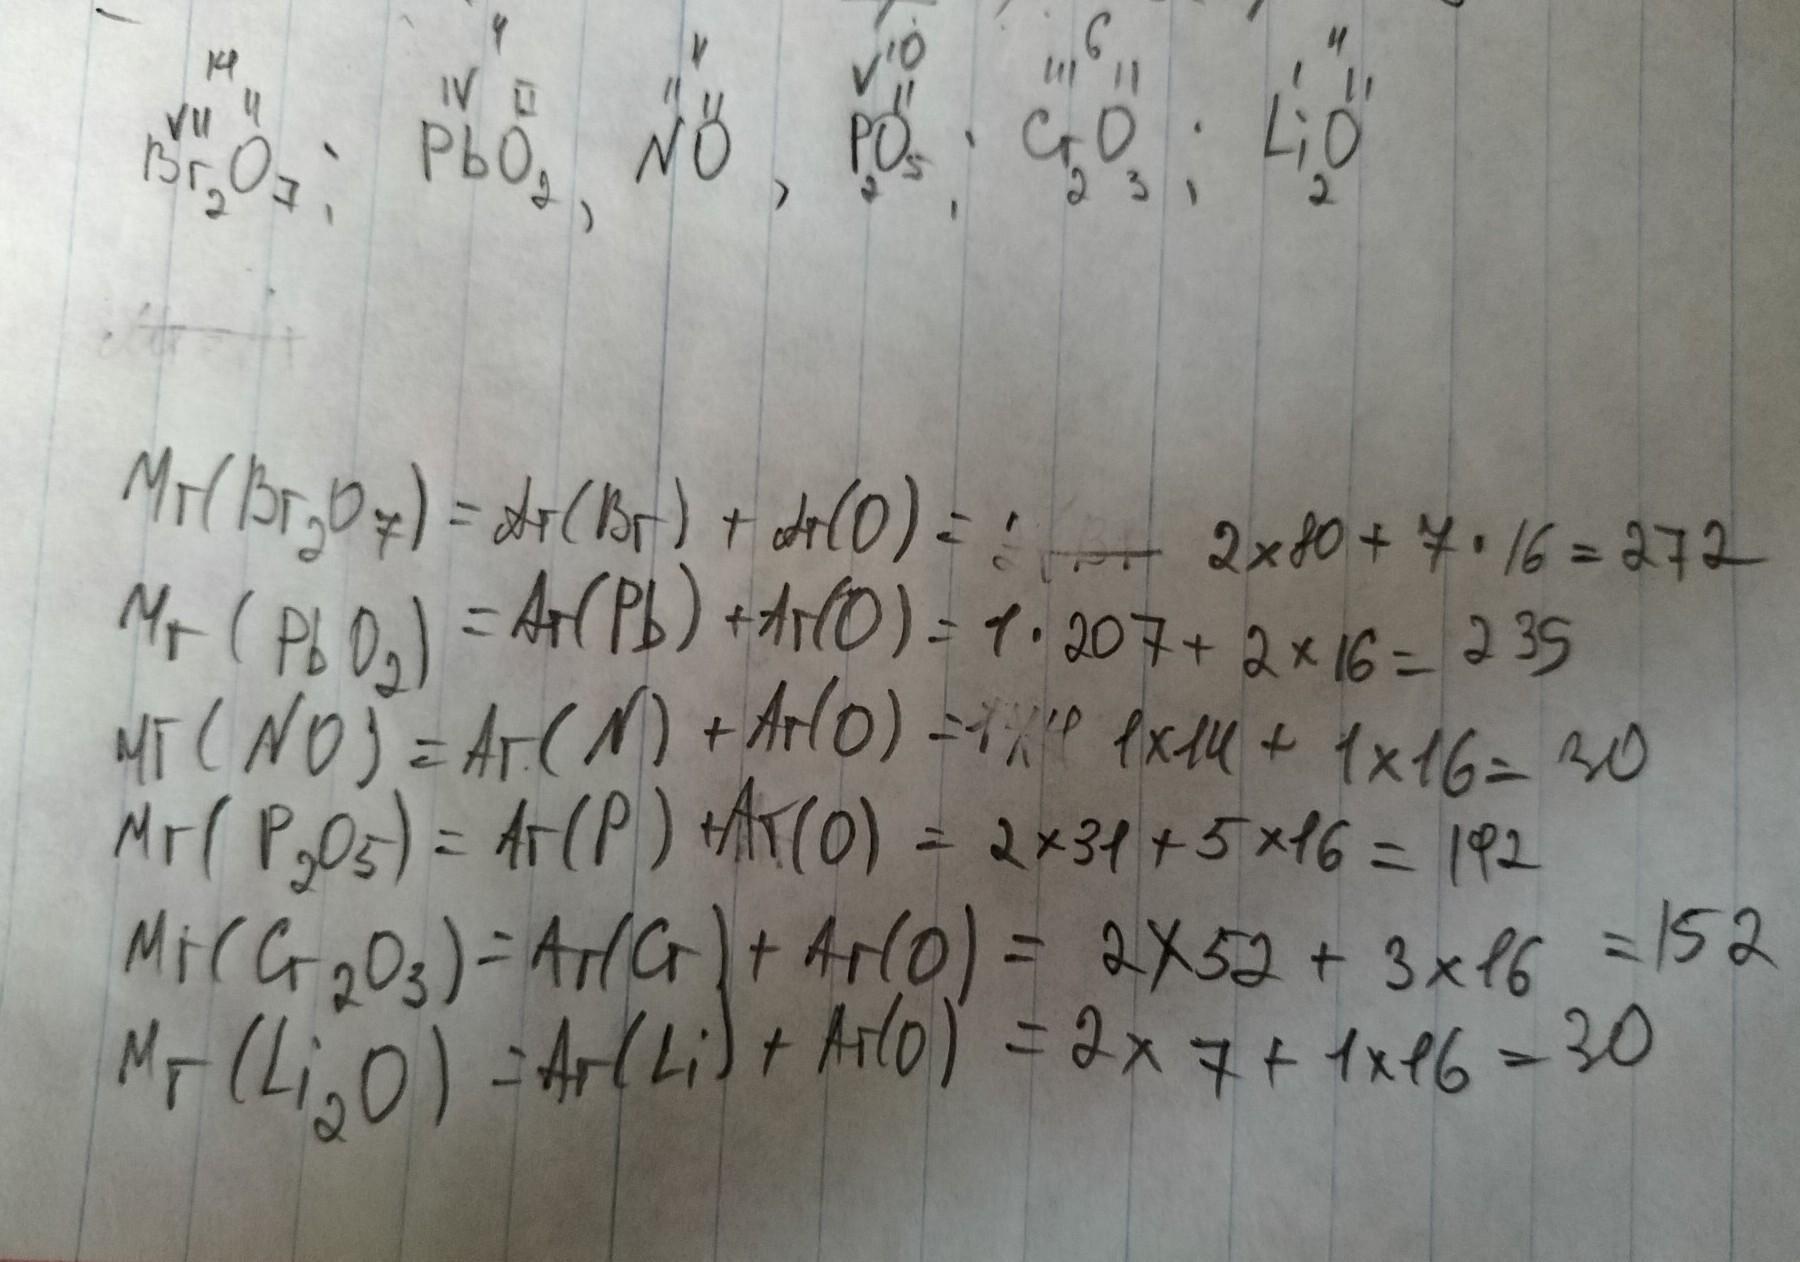 14 4 4 10 6 4
VII II IV II II II V II III II I II
Br₂O₇; PbO₂, NO, P₂O₅, Cr₂O₃; Li₂O
Mr(Br₂O₇) = Ar(Br) + Ar(O) = 2×80 + 7·16 = 272
Mr(PbO₂) = Ar(Pb) + Ar(O) = 1·207 + 2×16 = 239
Mr(NO) = Ar(N) + Ar(O) = 1×14 + 1×16 = 30
Mr(P₂O₅) = Ar(P) + Ar(O) = 2×31 + 5×16 = 142
Mr(Cr₂O₃) = Ar(Cr) + Ar(O) = 2×52 + 3×16 = 152
Mr(Li₂O) = Ar(Li) + Ar(O) = 2×7 + 1×16 = 30